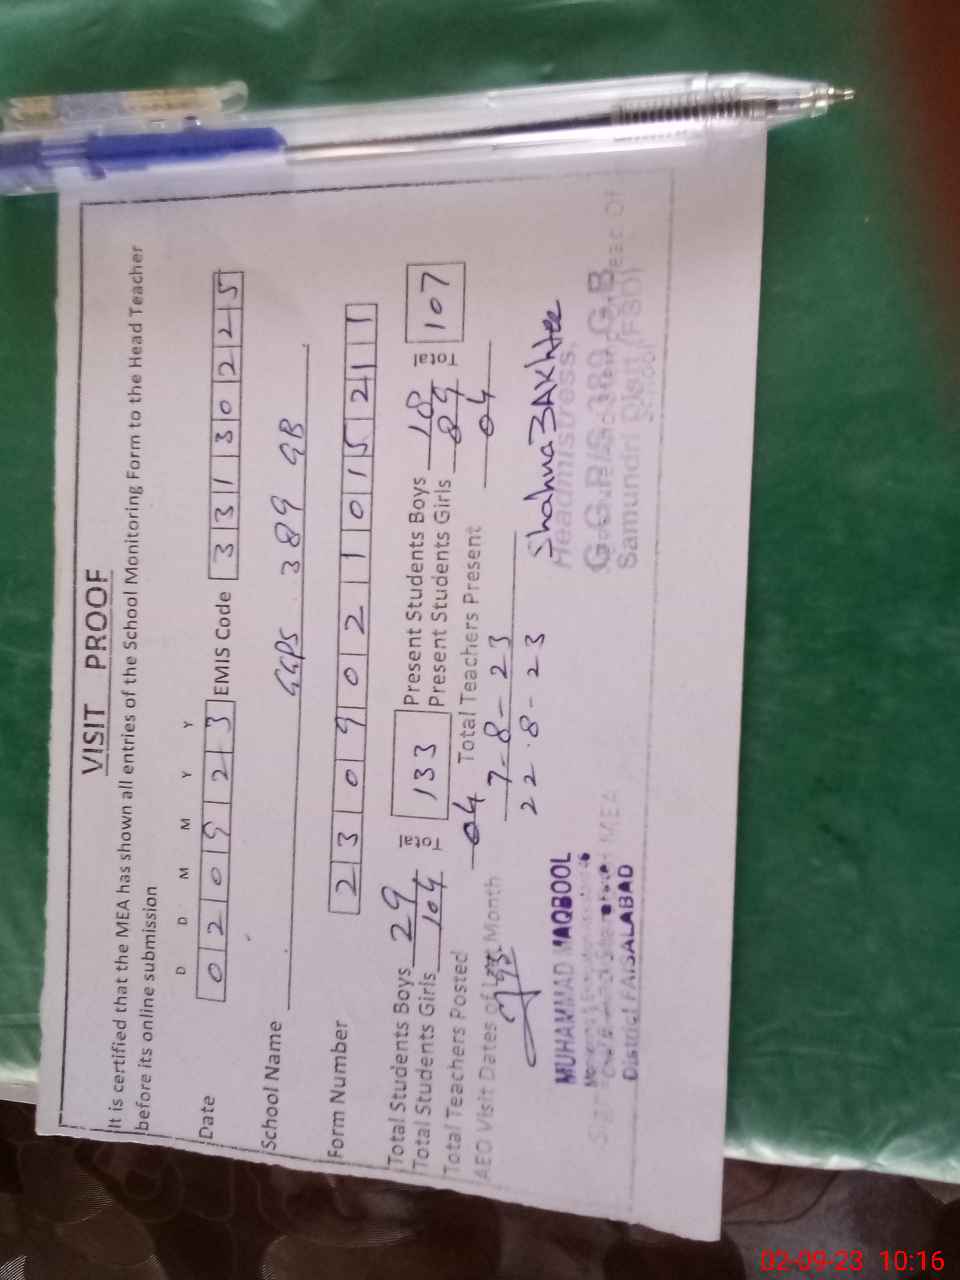 VISIT PROOF
It is certified that the MEA has shown all entries of the School Monitoring Form to the Head Teacher
before its online submission
D D M M Y Y
Date 0 2 0 9 2 3 EMIS Code 3 3 1 3 0 2 2 5
School Name GGPS 389 GB
Form Number 2 3 0 9 0 2 1 0 1 5 2 1 1
Total Students Boys 29 Total 133 Present Students Boys 18 Total 107
Total Students Girls 104 Present Students Girls 89
Total Teachers Posted 04 Total Teachers Present 04
AEO Visit Dates of Last Month 7-8-23
22-8-23
Shahnaz Akhter
MUHAMMAD MAQBOOL
District FAISALABAD
MEA
Headmistress,
G.G.P/S 389 G.B
Samundri Distt (FSD)
School
02-09-23 10:16